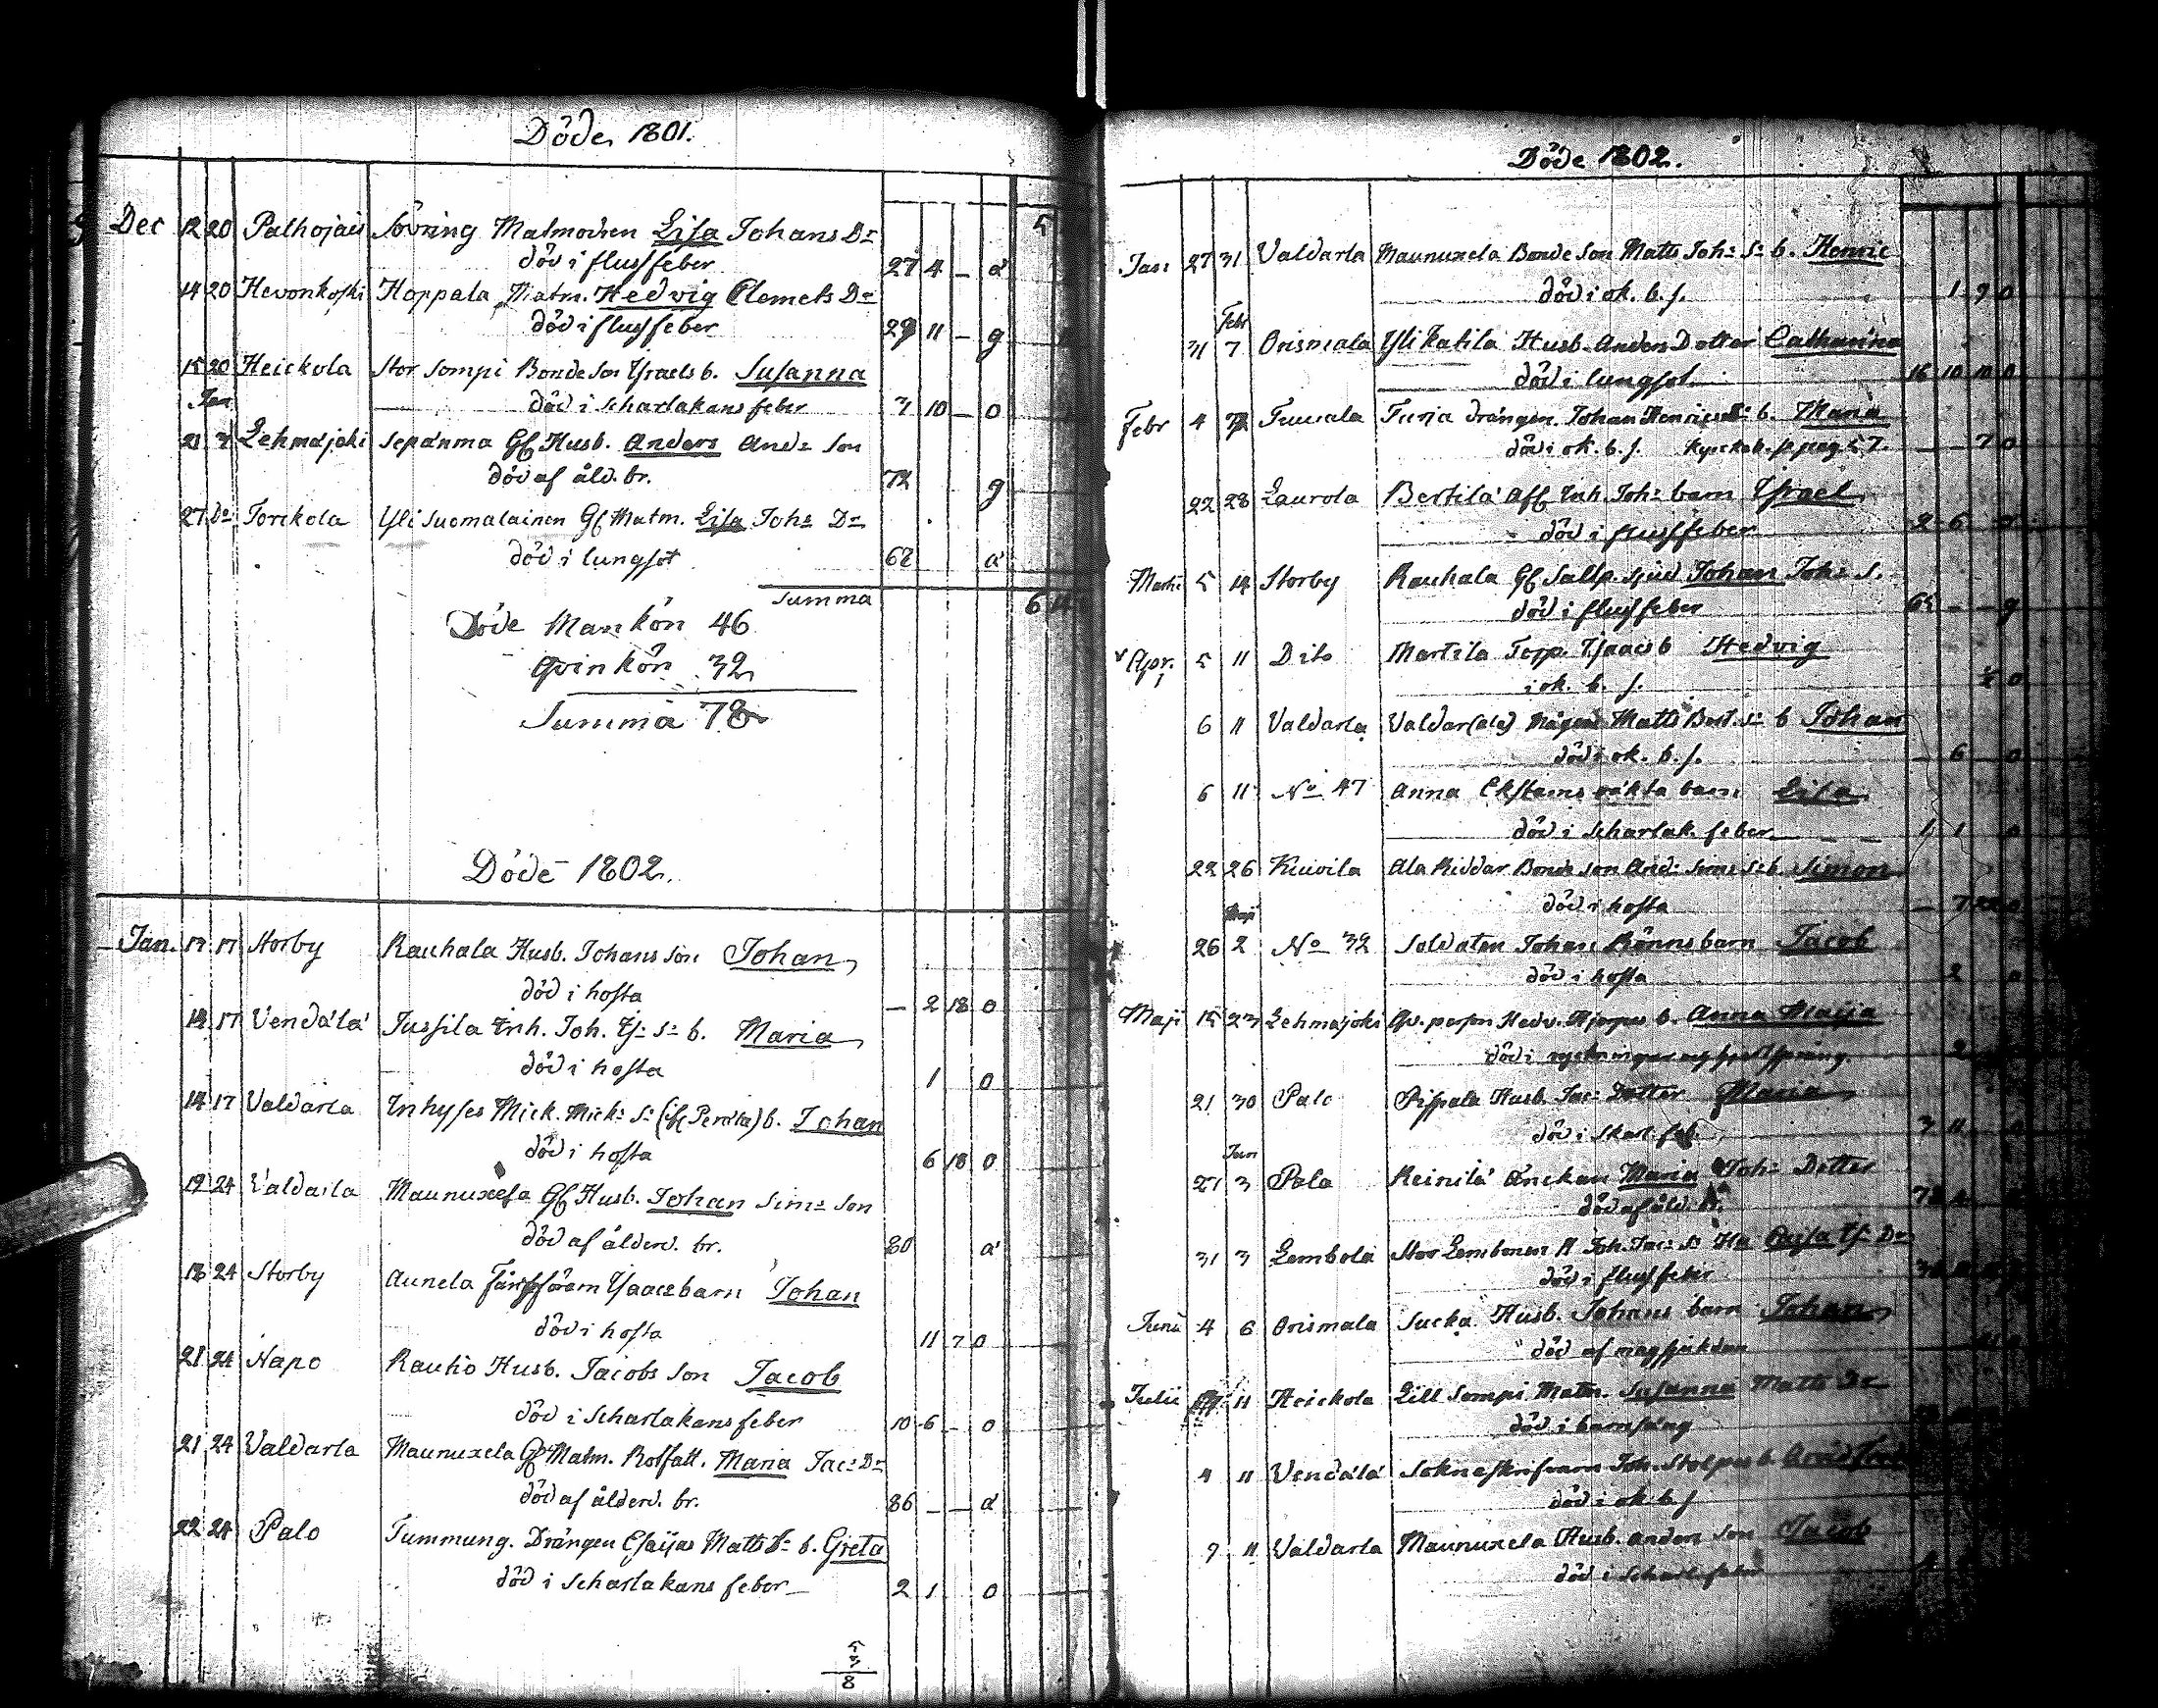 Döde 1801.
5
Dec 12 20 Palhojais Sövring Matmodren Lisa Johans Dr
död i flussfeber 27 4 - a
14 20 Hevonkoski Hoppala Matm. Hedvig Clemets Dr
död i flussfeber 29 11 - g
15 20 Heickola Stor Sompi Bonde Son Ysraels b. Susanna
död i Scharlakans feber 3 10 - o
Jan
21 3 Lehmäjoki Sepänma Gf Husb. Anders And: Son
död af åld. br. 72 g
27 Do Torckola Yli Suomalainen Gf Matm. Lisa Joh: Dr
död i lungsot 62 a
Summa 6 14
Döde Mankön 46
Qvinkön 32
Summa 78
Döde 1802.
Jan. 13 17 Storby Rauhala Husb. Johans Son Johan
död i hosta - 2 18 o
14 17 Vendälä Jussila Inh. Joh. Ys: S: b. Maria
död i hosta 1 o
14 17 Valdarla Inhyses Mick. Mick: S: Perälä) b. Johan
död i hosta 6 18 o
19 24 Valdarla Maunuxela Gf Husb. Johan Sim: Son
död af ålderd. br. 80 a
18 24 Storby Aunela Ysaacs barn Johan
död i hosta 11 7 o
21 24 Napo Rautio Husb. Jacobs Son Jacob
död i Scharlakans feber 10 6 - o
21 24 Valdarla Maunuxela Gf Matm. Maria Jac: Dr
död af ålderd. br. 86 - - a
22 24 Palo Tummung. Drängen Esaijas Matts S: b. Greta
död i Scharlakans feber 2 1 o
5
3
8
Döde 1802.
Jan 27 31 Valdarla Maunuxela Bonde Son Matts Joh: S: b. Henric
död i ok. b. s. 1 9 o
Febr
31 7 Orismala Yli Katila Husb. Anders Dotter Catharina
död i lungsot 16 10 10 o
Febr 4 7 Tuurala drängen Johan b. Maria
död i ok. b. s. pag. 57. - - 7 o
22 28 Laurola Bertilä Inh. Joh: barn Ysrael
död i flussfeber 2 6
Martii 5 14 Storby Rauhala Gf Johan Joh: S.
död i flussfeber 65 - - g
Apr. 5 11 Dito Martila Torp. Ysaacs b Hedvig
i ok. b. s. ½ o
6 11 Valdarla Matts S: b Johan
död i ok. b. s. - 6 - o
6 11 No 47 Anna Ekstams oäkta barn Lisa
död i Scharlak. feber 1 1 o
22 26 Kuivila Ala Riddar Bonde Son And: Sims S: b. Simon
död i hosta - 7 22 o
Maji
26 2 No 32 Soldaten Johan Rönns barn Jacob
död i hosta 2
Maji 15 23 Lehmäjoki Hedv. b. Anna Maija
död i
21 30 Palo Pispala Husb. Jac: Dotter Maria
död i Skarl. feb. 3 11
Jun
27 3 Palo Reinilä Enckan Maria Joh: Dotter
död af åld. br. 78
31 3 Lembola Stor Lembonen Joh. Jac: S: Caisa Ys: Dr
död i flussfeber
Junii 4 6 Orismala Sucka Husb. Johans barn Johan
död af magsjukdom
Julii 11 Heickola Lill Sompi Matm. Susanna Matts Dr
död i barnsäng
4 11 Vendälä Joh. Stolpes b.
död i ok. b. s
9 11 Valdarla Maunuxela Husb. Anders Son Jacob
död i Scharl. feber